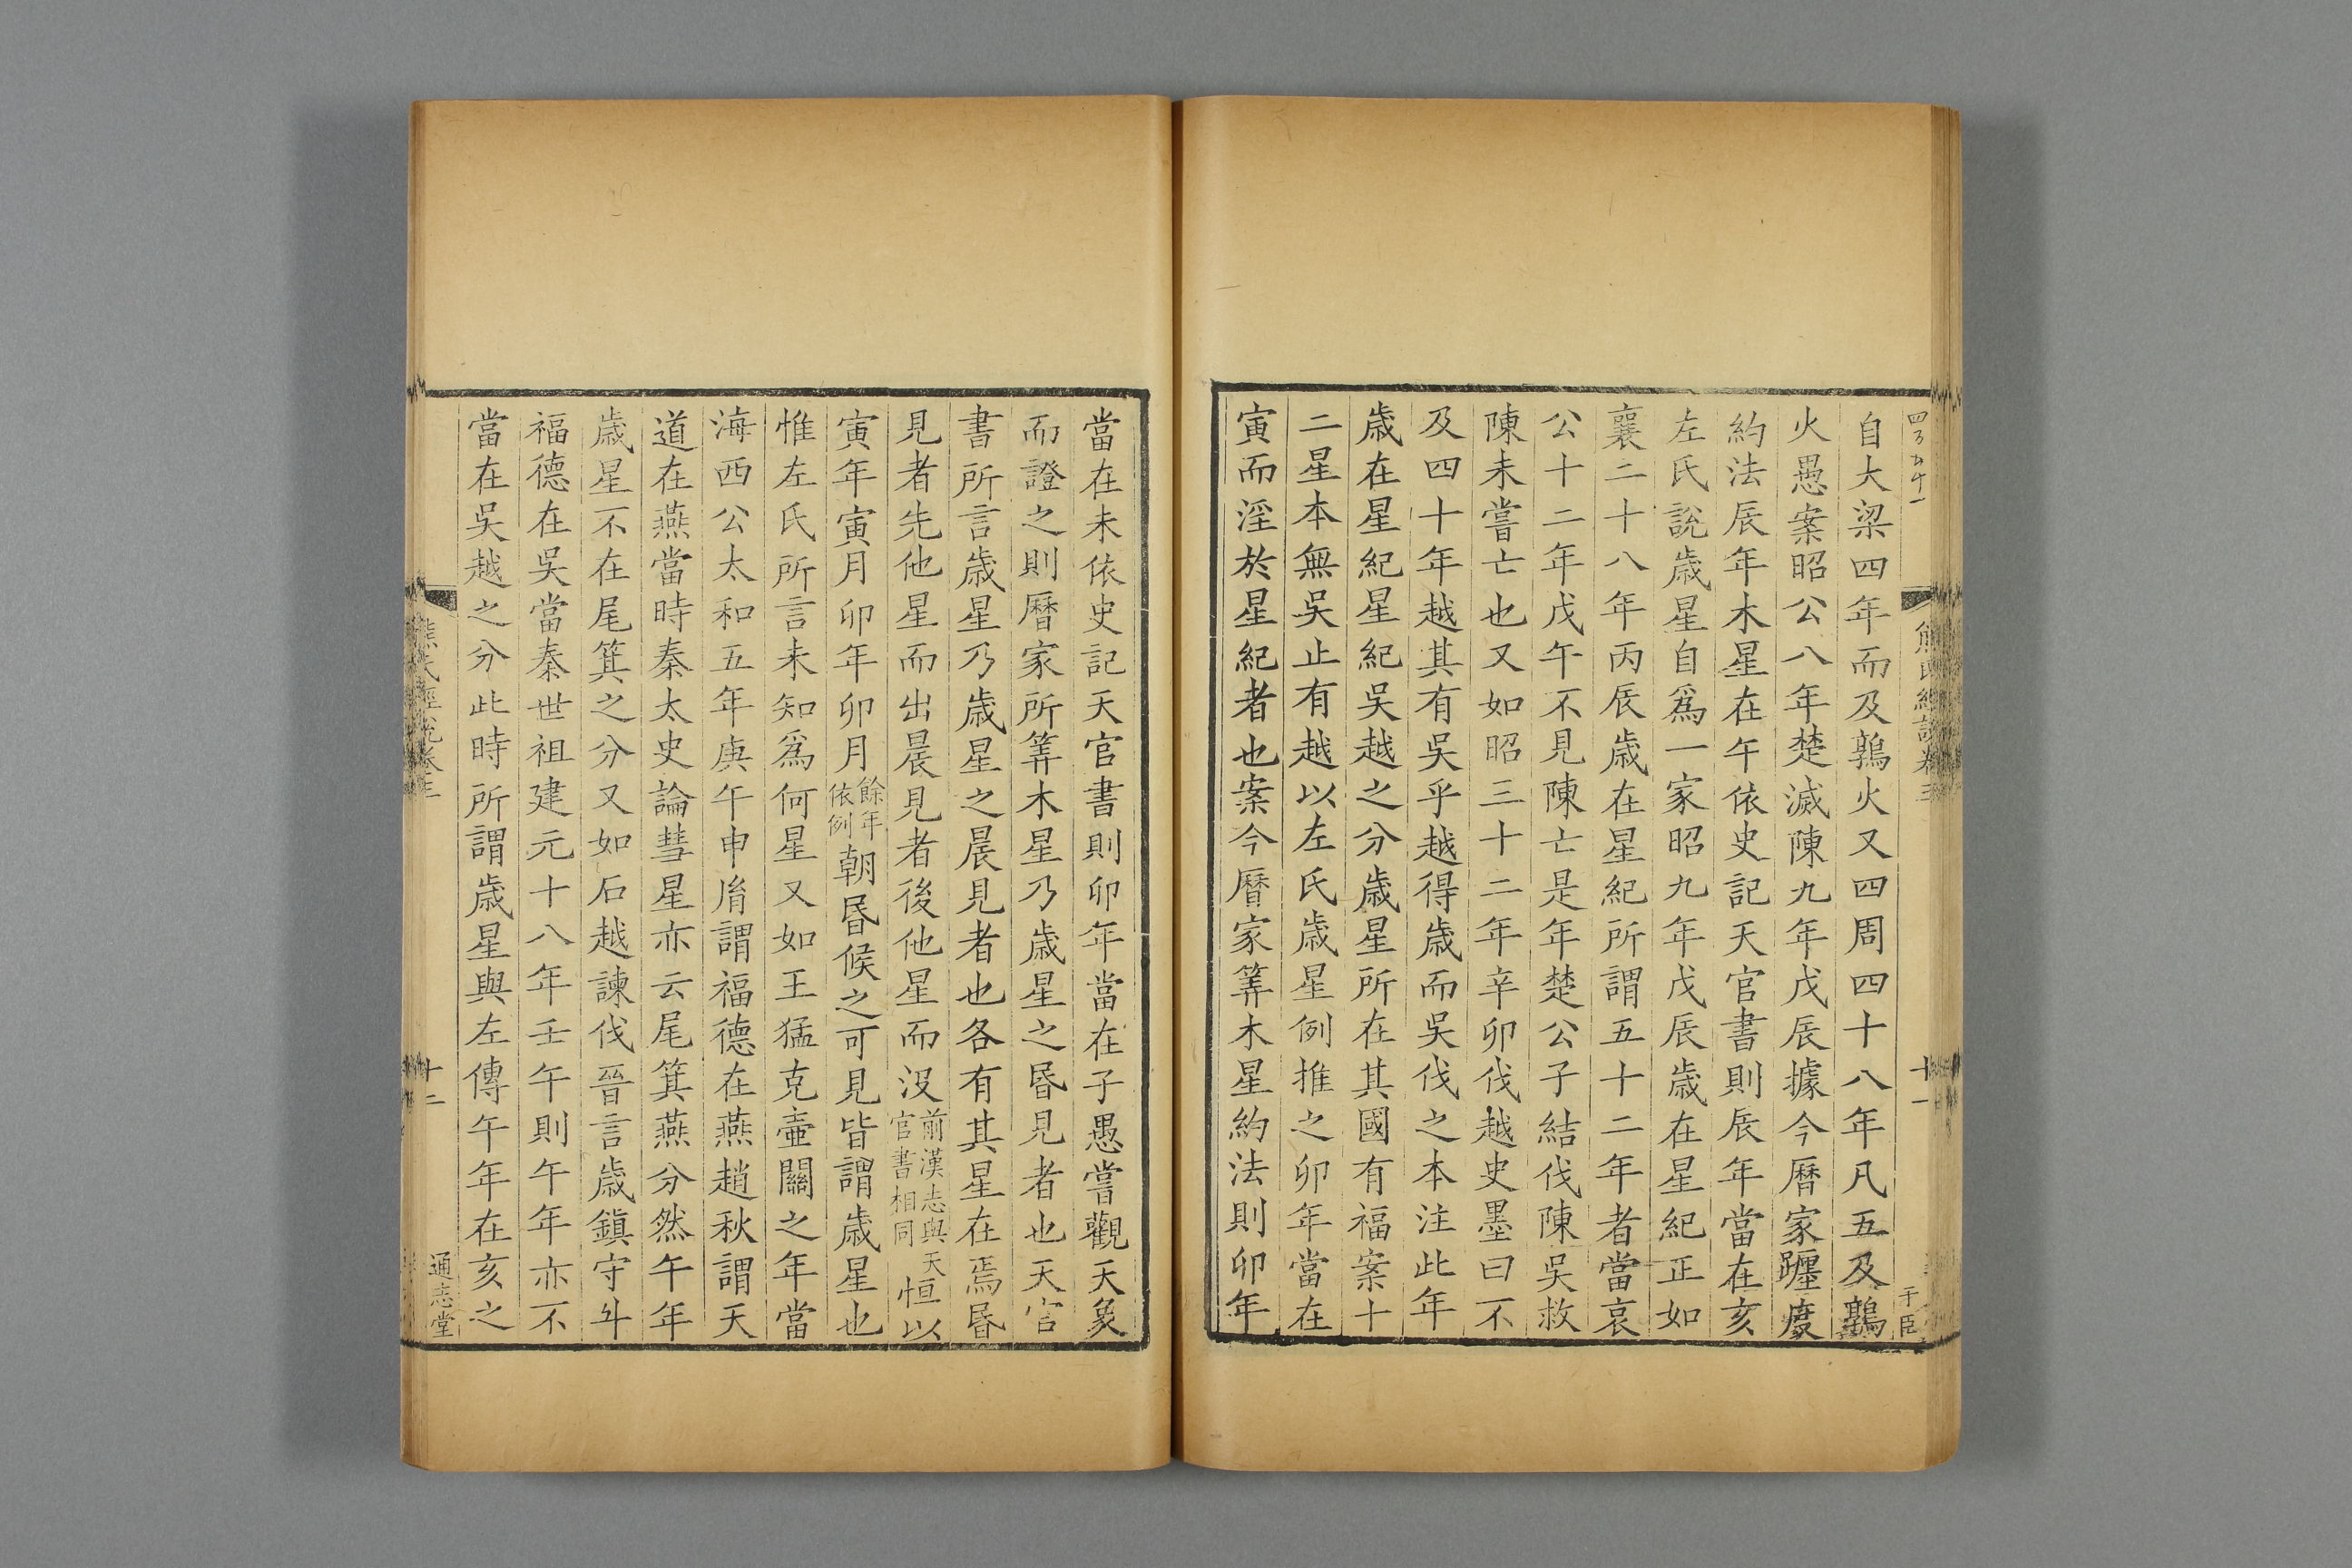 自大梁四年而及鶉火又四周四十八年凡五及鶉
火愚案昭公八年楚滅陳九年戊辰據今曆家躔度
約法辰年木星在午依史記天官書則辰年當在亥
左氏說歲星自爲一家昭九年戊辰歲在星紀正如
襄二十八年丙辰歲在星紀所謂五十二年者當哀
公十二年戊午不見陳亡是年楚公子結伐陳吳救
陳未嘗亡也又如昭三十二年辛卯伐越史墨曰不
及四十年越其有吳乎越得歲而吳伐之本注此年
歲在星紀星紀吳越之分歲星所在其國有福案十
二星本無吳止有越以左氏歲星例推之卯年當在
寅而淫於星紀者也案今曆家筭木星約法則卯年
十一
于臣
當在未依史記天官書則卯年當在子愚嘗觀天象
而證之則曆家所筭木星乃歲星之昏見者也天官
書所言歲星乃歲星之晨見者也各有其星在焉昏
見者先他星而出晨見者後他星而沒前漢志與天官書相同恒以
寅年寅月卯年卯月餘年依例朝昏候之可見皆謂歲星也
惟左氏所言未知爲何星又如王猛克壷關之年當
海西公太和五年庚午申胤謂福德在燕趙秋謂天
道在燕當時秦太史論彗星亦云尾箕燕分然午年
歲星不在尾箕之分又如石越諫伐晉言歲鎮守斗
福德在吳當秦世祖建元十八年壬午則午年亦不
當在吳越之分此時所謂歲星與左傳午年在亥之
熊氏經說卷三
十二
通志堂